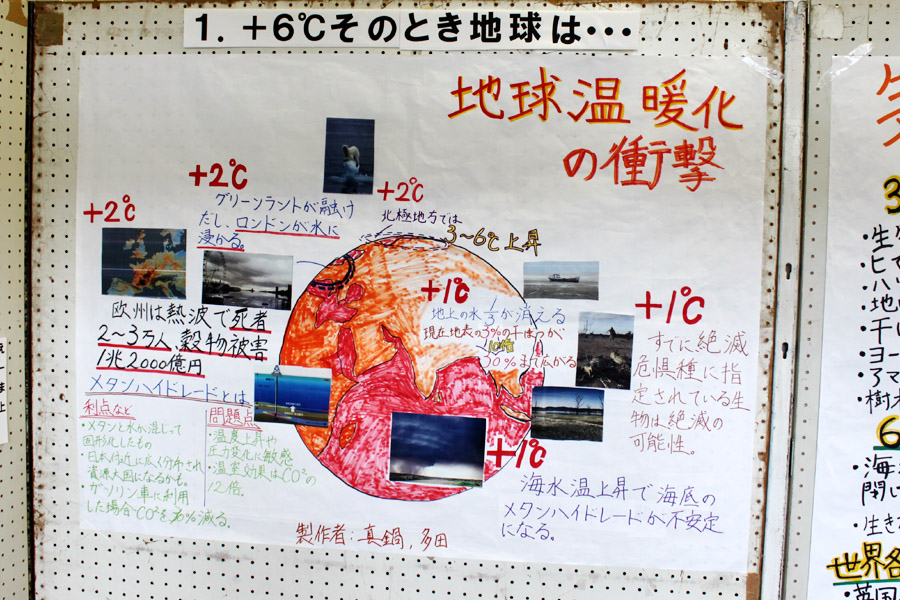 1. +6℃そのとき地球は・・・
地球温暖化
の衝撃
+2℃
グリーンラントが融け
だし、ロンドンが水に
浸かる。
+2℃
北極地方では
3〜6℃上昇
+2℃
欧州は熱波で死者
2〜3万人、穀物被害
1兆2000億円
+1℃
地上の水1/3が消える
現在地表の3%の干ばつが
10倍
30%まで広がる
+1℃
すでに絶滅
危惧種に指
定されている生
物は絶滅の
可能性。
メタンハイドレードとは
利点など
・メタンと水が混じって
固形化したもの
・日本付近に広く分布され
資源大国になるかも。
ガソリン車に利用
した場合CO²を
減る。
問題点
・温度上昇や
圧力変化に敏感
・温室効果はCO²の
12倍。
+1℃
海水温上昇で海底の
メタンハイドレードが不安定
になる。
製作者:真鍋,多田
3
・生
・ヒ
・ハ
・地
・干
・ヨー
・アマ
・樹
6
・海
開
・生き
世界各
・英国